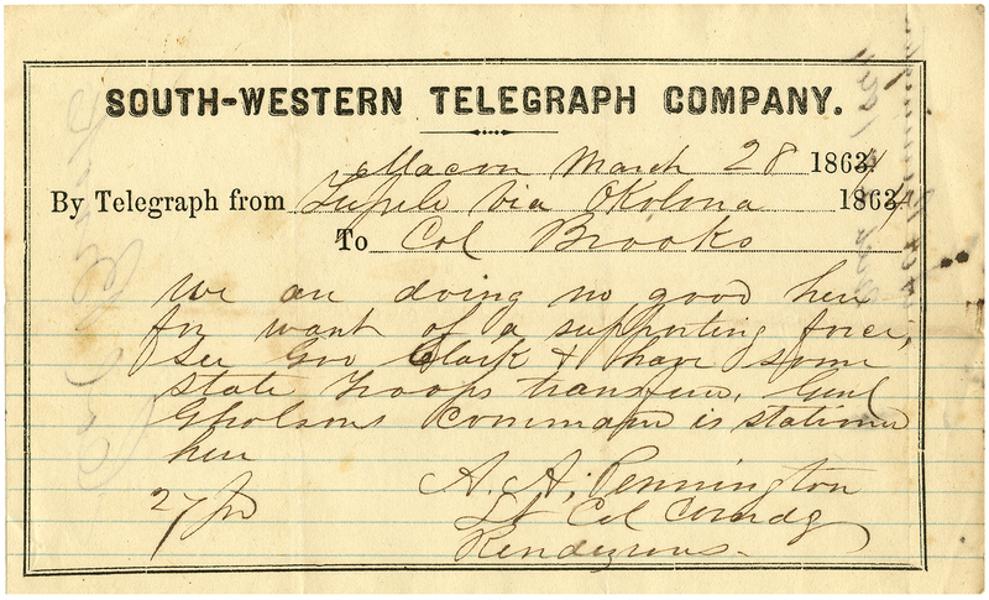 SOUTH-WESTERN TELEGRAPH COMPANY.
Macon March 28 1864
By Telegraph from Tupelo Via Okolona 1864
To Col Brooks
We are doing no good here
for want of a supporting force,
See Gov Clark & have some
state troops transferred, Genl
Gholsons Command is stationed
here
A. A. Pennington
27 pd
Lt Col Comdg
Rendezvous.